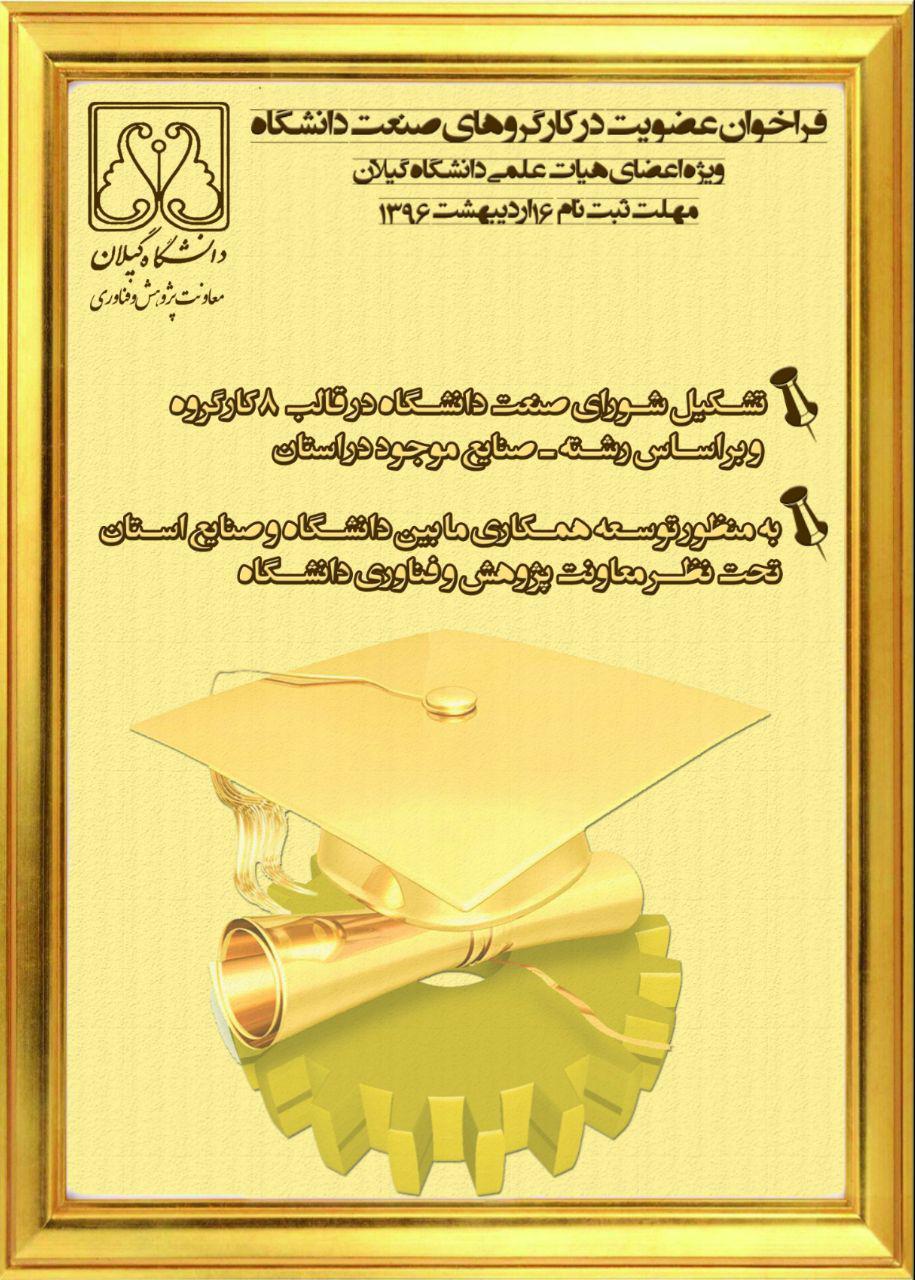 فراخوان عضویت در کارگروهای صنعت دانشگاه
ویژه اعضای هیات علمی دانشگاه گیلان
مهلت ثبت نام ۱۶ اردیبهشت ۱۳۹۶
دانشگاه گیلان
معاونت پژوهش و فناوری
تشکیل شورای صنعت دانشگاه در قالب ۸ کارگروه
و بر اساس رشته - صنایع موجود در استان
به منظور توسعه همکاری ما بین دانشگاه و صنایع استان
تحت نظر معاونت پژوهش و فناوری دانشگاه